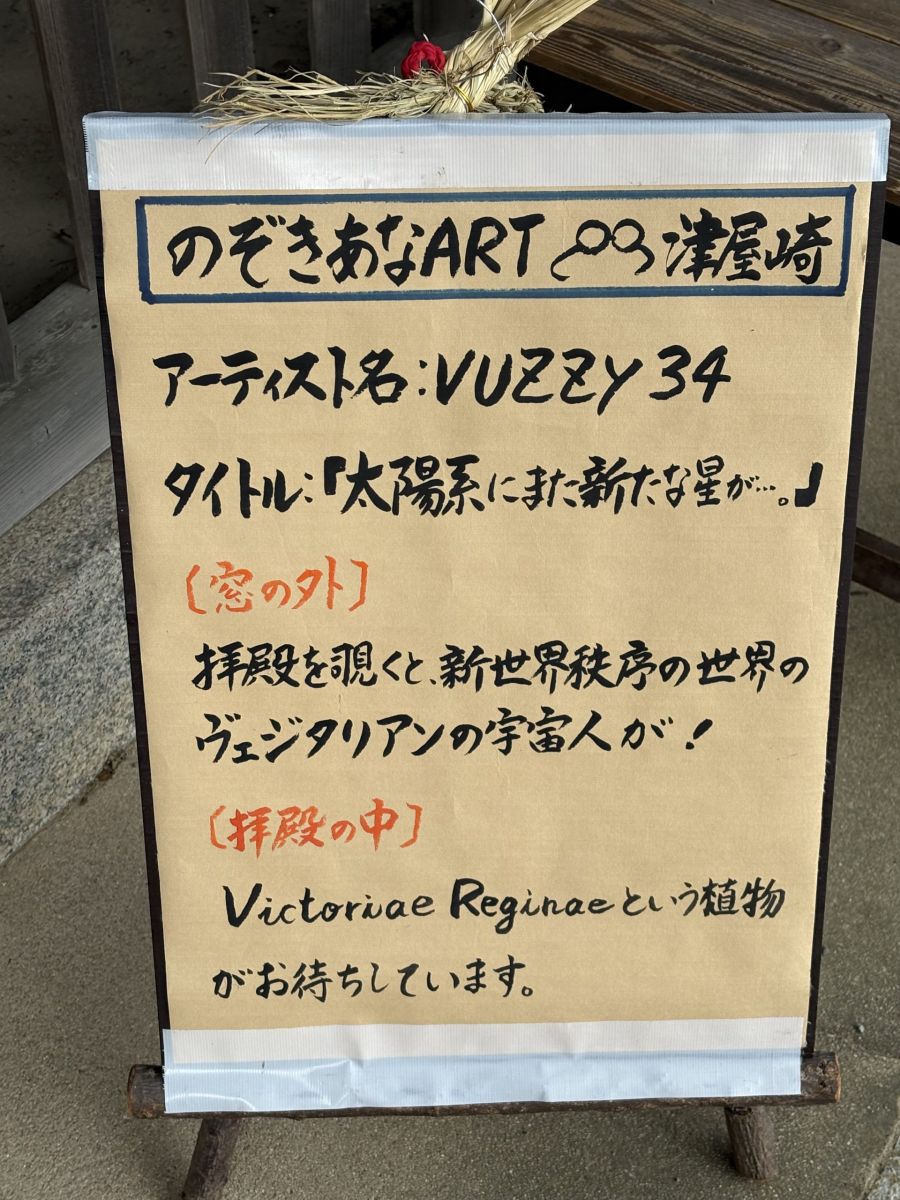 のぞきあなART 津屋崎
アーティスト名:VUZZY34
タイトル:「太陽系にまた新たな星が…。」
〔窓の外〕
拝殿を覗くと、新世界秩序の世界の
ヴェジタリアンの宇宙人が!
〔拝殿の中〕
Victoriae Reginaeという植物
がお待ちしています。